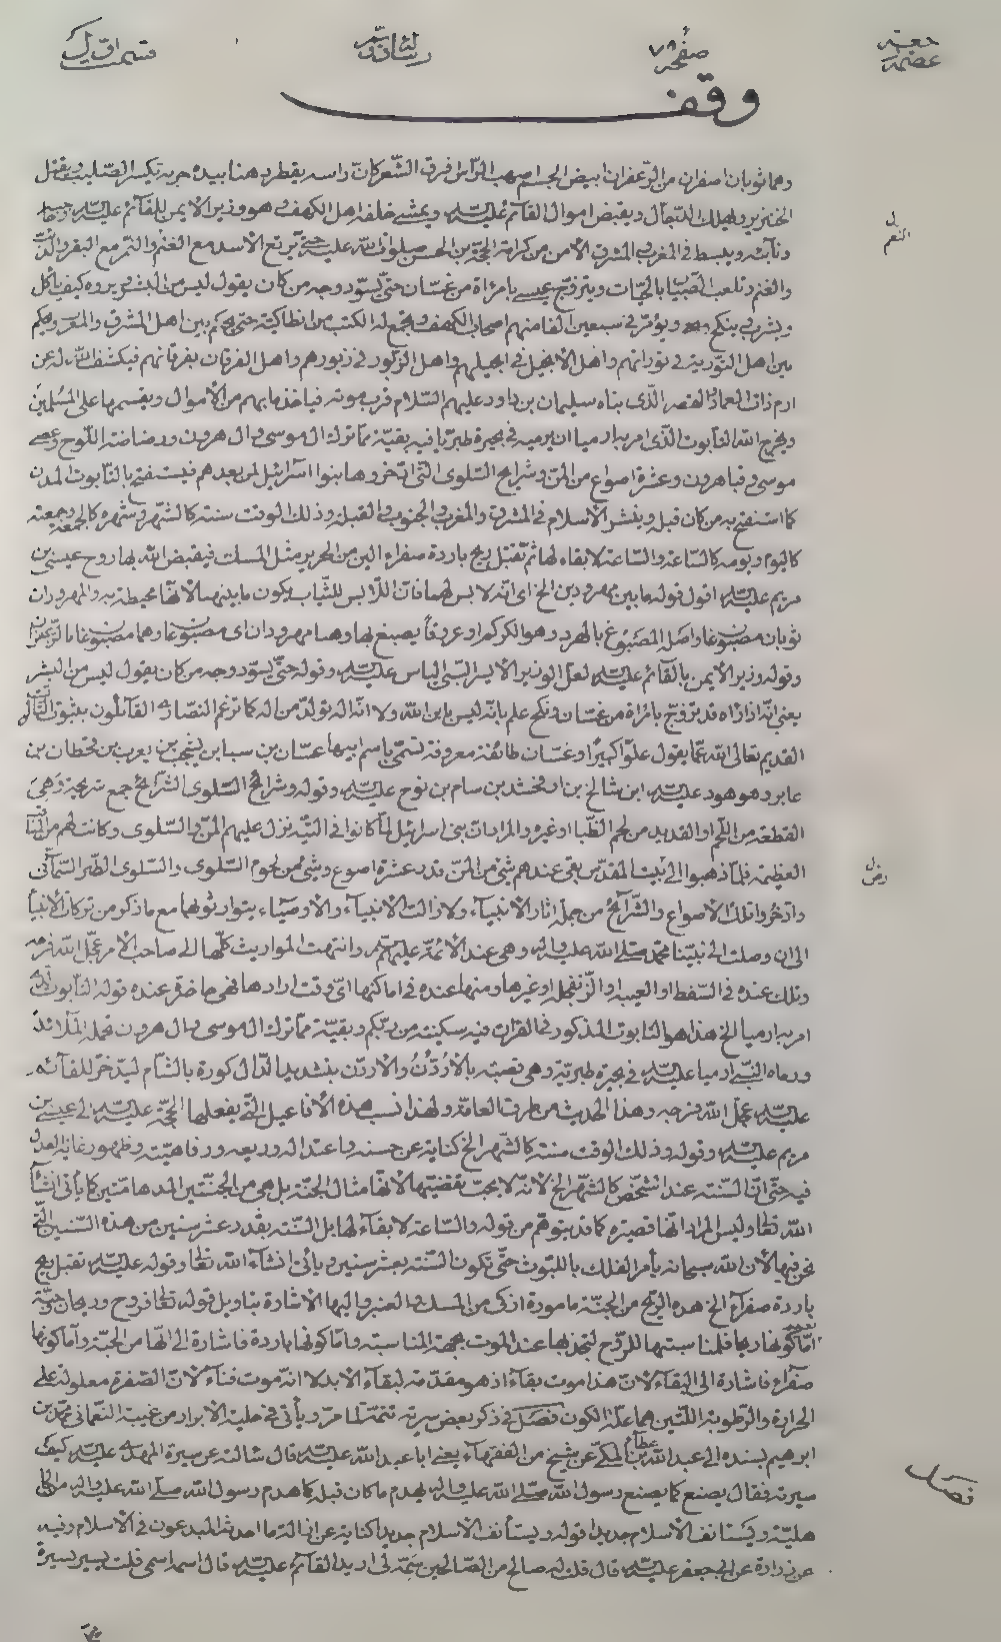 صفحه ٧٨
وقف
وهما ثوبان اصفران من الزعفران ابيض الجسم اصهب الرأس فرق الشعر كان راسه يقطر دهنا بيده حربة يكسر الصليب ويقتل
الخنزير ويهلك الدجال ويقبض اموال القائم عليه السلام ويمشي خلفه اهل الكهف وهو وزير الايمن للقائم عليه السلام وحاجبه
ونائبه ويبسط في المغرب والمشرق الامن من كرامة الحجة بن الحسن صلوات الله عليه حتى يرتع الاسد مع الغنم والنمر مع البقر والذئب
والغنم وتلعب الصبيان بالحيات ويتزوج عيسى بامراة من غسان حتى يسود وجه من كان يقول ليس من البشر يروه كيف ياكل
ويشرب وينكح ويؤمر في سبعين الفا منهم اصحاب الكهف ويجمع له الكتب من انطاكية حتى يحكم بين اهل المشرق والمغرب ويحكم
بين اهل التورية في توراتهم واهل الانجيل في انجيلهم واهل الزبور في زبورهم واهل الفرقان بفرقانهم فيكشف الله له عن
ارم ذات العماد والقصر الذى بناه سليمان بن داود عليهم السلام قرب موته فياخذ ما بهم من الأموال ويقسمها على المسلمين
ويخرج الله التابوت الذى امر به ارميا ان يرميه في بحيرة طبريا فيه بقية مما ترك ال موسى وال هرون ورضاضة اللوح وعصى
موسى وقبا هرون وعشرة اصواع من المن وشرايح السلوى التى ادخروها بنوا اسرائيل لمن بعدهم فيستفتح بالتابوت المدن
كما استفتح به من كان قبله وينشر الاسلام في المشرق والمغرب والجنوب والقبلة وذلك الوقت سنة كالشهر وشهره كالجمعة وجمعته
كاليوم ويومه كالساعة والساعة لا بقاء لها ثم تقبل ريح باردة صفراء الين من الحرير مثل المسك فيقبض الله بها روح عيسى بن
مريم عليه السلام اقول قوله ما بين مهرودين الخ اى انه لابس لهما فان اللابس للثياب يكون ما بينهما لانها محيطة به والمهرودان
ثوبان مصبوغا واصل المصبوغ بالهرد وهو الكركم او عروقا يصبغ بها وهما مهرودان اى مصبوغا وهما مصبوغا بالزعفران
وقوله وزير الايمن بالقائم عليه السلام لعل الوزير الايسر النبي الياس عليه السلام وقوله حتى يسود وجه من كان يقول ليس من البشر
يعنى انه اذا راه قد تزوج بامراة من غسان ونكح علم بانه ليس بابن الله ولا انه اله تولد من اله كما تزعم النصارى القائلون بثبوت
القديم تعالى الله عما يقول علوا كبيرا وغسان طائفة معروفة تسمى باسم ابيها غسان بن سبا بن يشجب بن يعرب بن قحطان بن
عابر وهو هود عليه السلام ابن شالخ بن ارفخشد بن سام بن نوح عليه السلام وقوله وشرائح السلوى الشرائح جمع شريحة وهي
القطعة من اللحم او القديد من لحم الظبا او غيره والمراد ان بنى اسرائيل لما كانوا في التيه نزل عليهم المن والسلوى وكانت لهم من
العظيمة فلما ذهبوا الى بيت المقدس بقي عندهم شئ من المن قدر عشرة اصوع وشئ من لحوم السلوى والسلوى الطير السمانى
وادخروا تلك الاصواع والشرائح من جملة اثار الانبياء ولا زالت الانبياء والاوصياء يتوارثونها مع ما ذكر من تركات الانبيا
الى ان وصلت الى نبينا محمد صلى الله عليه واله وهى عند الائمة عليهم السلام وانتهت المواريث كلها الى صاحب الامر عجل الله فرجه
وتلك عنده في السفط او العيبة او الزنفجلة او غيرها ومنها عنده في اماكنها اى وقت ارادها فهى حاضرة عنده قوله التابوت الذى
امر به ارميا الخ هذا هو التابوت المذكور في القران فيه سكينة من ربكم وبقية مما ترك ال موسى وال هرون تحمله الملائكة
ورماه النبي ارميا عليه السلام في بحيرة طبرية وهى قصبة بالاردن والاردن بتشديد الدال كورة بالشام ليدخر للقائم
عليه السلام عجل الله فرجه وهذا الحديث من طرق العامة ولهذا نسب هذه الافاعيل التى يفعلها الحجة عليه السلام الى عيسى بن
مريم عليه السلام وقوله وذلك الوقت سنة كالشهر الخ كناية عن حسنه واعتداله وربيعه ورفاهيته وظهور غاية العدل
فيه حتى ان السنة عند الشخص كالشهر الخ لانه لا يحب تقضيها لانها مثال الجنة بل هي من الجنتين المدهامتين كما يأتى انشاء
الله تعالى وليس المراد انها قصيرة كما قد يتوهم من قوله والساعة لا بقاء لها بل السنة بقدر عشر سنين من هذه السنين التى
نحن فيها لان الله سبحانه يأمر الفلك باللبوث حتى تكون السنة بعشر سنين ويأتى انشاء الله تعالى وقوله عليه السلام تقبل ريح
باردة صفراء الخ هذه الريح من الجنة مامورة ازكى من المسك والعنبر واليها الاشارة بتاويل قوله تعالى فروح وريحان وجنة
نعيم اما كونها ريحا فلمناسبتها للروح لتجذبها عند الموت بجهة المناسبة واما كونها باردة فاشارة الى انها من الجنة واما كونها
صفراء فاشارة الى البقاء لان هذا موت بقاء اذ هو مقدمة لبقاء الابد لا انه موت فناء لان الصفرة معلولة على
الحرارة والرطوبة اللتين هما علة الكون فصل في ذكر بعض سيرته تتمة لما مر ويأتى في حلية الابرار من غيبة النعمانى محمد بن
ابرهيم بسنده الى عبد الله بن عطاء المكى عن شيخ من الفقهاء يعنى ابا عبد الله عليه السلام قال سالته عن سيرة المهدى عليه السلام كيف
سيرته فقال يصنع كما يصنع رسول الله صلى الله عليه واله يهدم ما كان قبله كما هدم رسول الله صلى الله عليه واله من الجا
هلية ويستانف الاسلام جديدا قوله ويستأنف الاسلام جديدا كناية عن ازالة ما احدث المبدعون في الاسلام وفيه
عن زرارة عن ابى جعفر عليه السلام قال قلت له صالح من الصالحين سمه لى اريد القائم عليه السلام قال اسمه اسمى قلت يسير بسيرة
فصل